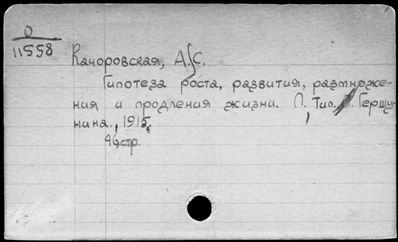 0
11558
Качоровская, А.С.
Гипотеза роста, развития, размноже-
ния и продления жизни. П. Тип. Гершу-
нина, 1915.
46стр.